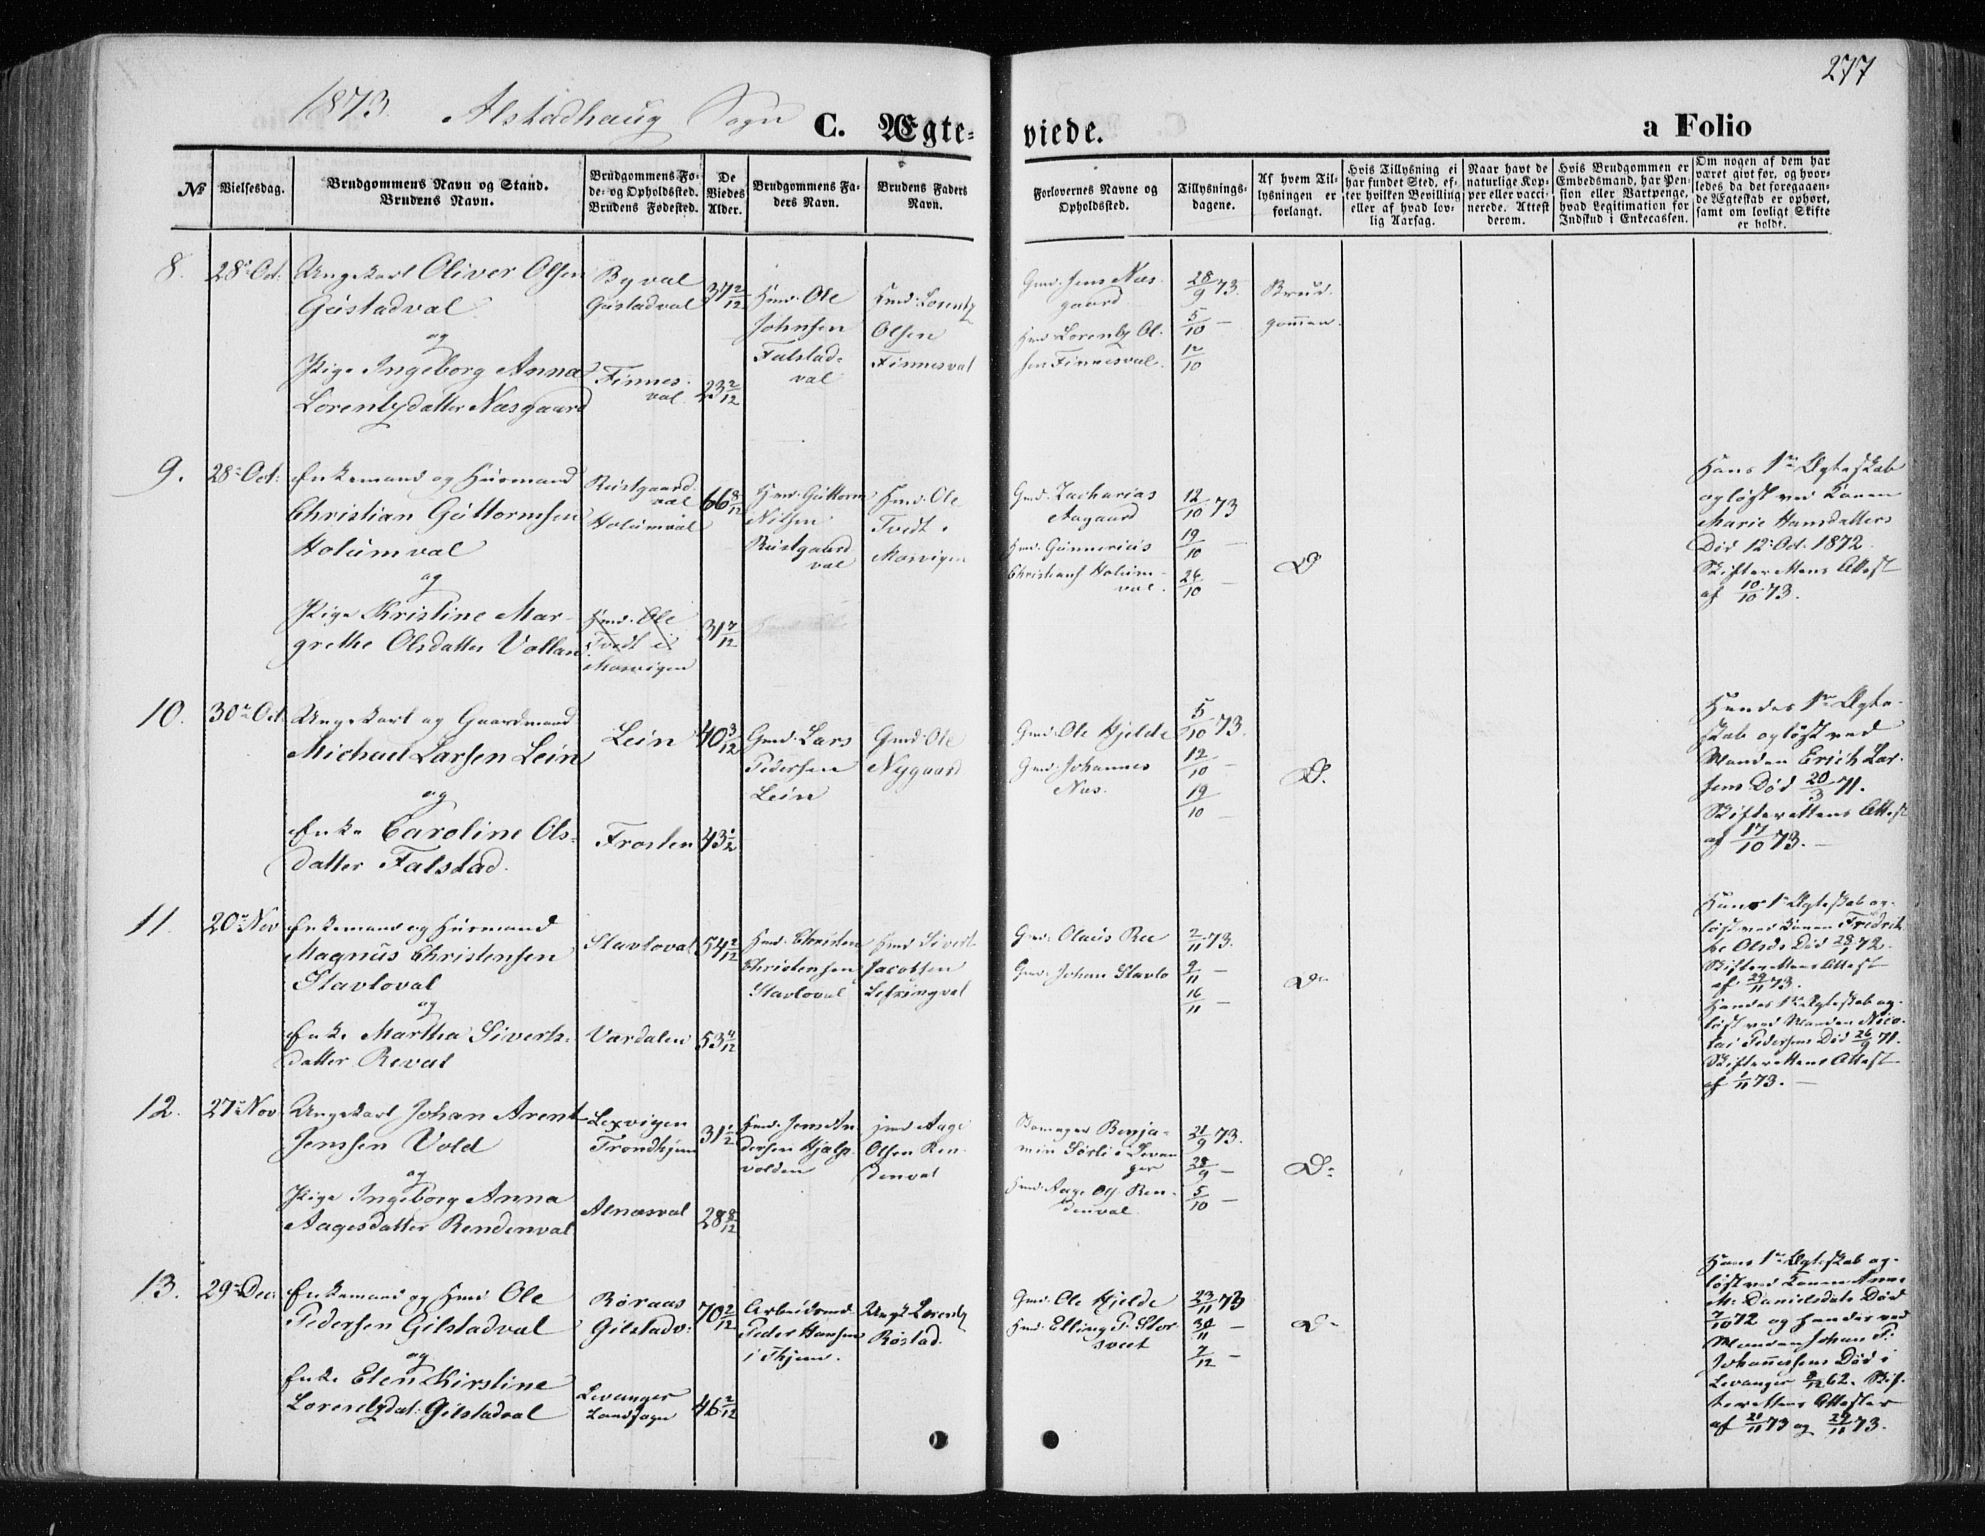 277
1873. Alstadhaug Sogn C. Ægte-
viede. a Folio
No
Vielsesdag.
Brudgommens Navn og Stand.
Brudens Navn.
Brudgommens Fø-
de- og Opholdssted.
Brudens Fødested.
De
Viedes
Alder.
Brudgommens Fa-
ders Navn.
Brudens Faders
Navn.
Forlovernes Navne og
Opholdssted.
Tillysnings-
dagene.
Af hvem Til-
lysningen er
forlangt.
Hvis Tillysning ei
har fundet Sted, ef-
ter hvilken Bevilling
eller af hvad lov-
lig Aarsag.
Naar havt de
naturlige Kop-
per eller vacci-
nerede. Attest
derom.
Hvis Brudgommen er
Embedsmand, har Pen-
sion eller Vartpenge,
hvad Legitimation for
Indskud i Enkecassen.
Om nogen af dem har
været givt før, og hvor-
ledes da det foregaaen-
de Ægteskab er ophørt,
samt om lovligt Skifte
er holdt.
8. 28de Oct.
Ungekarl Oliver Olsen
Gustadval
og
Pige Ingeborg Anna
Lorentzdatter Næsgaard
Byval
Gustadval
Finnes-
val
37 2/12
23 2/12
Hmd. Ole
Johnsen
Falstad-
val
Hmd. Lorentz
Olsen
Finnesval
Gmd. Jens Næs-
gaard
Hmd. Lorentz Ol-
sen Finnesval.
28/9 73.
5/10 —
12/10
Brud-
gommen.
9. 28de Oct:
Enkemand og Husmand
Christian Guttormsen
Holumval
og
Pige Kristine Mar-
grethe Olsdatter Vollan
Rustgaard-
val
Holumval
Hmd. Ole
Tvedt i
Mosvigen
66 8/12
31 7/12
Hmd. Guttorm
Nilsen
Rustgaard
val
Hmd. Ole
Tvedt i
Mosvigen
Gmd. Zacharias
Aagaard
Hmd. Gunnerius
Christians Holum-
val.
12/10 73
19/10 —
26/10 —
D
Hans 1ste Ægteskab
opløst ved Konen
Marie Hansdatters
Død 12. Oct. 1872.
Skifterettens Attest
af 10/10 73.
10. 30te Oct.
Ungekarl og Gaardmand
Michael Larsen Lein
og
Enke Caroline Ols-
datter Falstad.
Lein
Frosten
40 3/12
43 1/2
Gmd. Lars
Pedersen
Lein
Gmd. Ole
Nygaard
Gmd. Ole Hjelde
Gmd. Johannes
Næs.
5/10 73.
12/10 —
19/10 —
D.
Hendes 1ste Ægte-
skab opløst ved
Manden Erich Lar-
sens Død 20/3 71.
Skifterettens Attest
af 17/10 73. —
11. 20de Nov
Enkemand og Husmand
Magnus Christensen
Stavloval
og
Enke Martha Siverts-
datter Reval
Stavloval
Værdalen
54 2/12
53 4/12
Hmd. Christen
Christensen
Stavloval
Hmd Sivert
Jacobsen
Lefringval
Gmd. Olaus Ree
Gmd. Johan Stavlo
2/11 73.
9/11 —
16/11 —
Do
Hans 1ste Ægteskab op-
løst ved Konen Fredrik-
ke Olsds Død 28/1 72.
Skifterettens Attest
af 29/11 73.
Hendes 1ste Ægteskab op-
løst ved Manden Nico-
lai Pedersens Død 26/9 71.
Skifterettens Attest
af 1/11 73. —
12. 27de Nov
Ungekarl Johan Arent
Jensen Vold
og
Pige Ingeborg Anna
Aagesdatter Rendenval
Lexvigen
Trondhjem
Alnæsval
31 1/2
28 8/12
Hmd. Jens An-
dersen Hjelp-
volden
Hmd Aage
Olsen Ren-
denval
Snmager Benja-
min Sørli i Levan-
ger
Hmd. Aage Ols. Ren-
denval.
21/9 73.
28/9 —
5/10 —
Do
13. 29de Dec:
Enkemand og Hmd Ole
Pedersen Gilstadval
og
Enke Elen Kirstine
Lorentzdat: Gilstadval
Røraas
Gilstadv:
Levanger
Landsogn
70 2/12
46 2/12
Arbeidsmd.
Peder Hansen
i Thjem.
Ungk Lorentz
Røstad.
Gmd. Ole Hjelde
Hmd. Elling P. Stor-
sveet
23/11 73
30/11 —
7/12 —
Do
Hans 1ste Ægteskab op-
løst ved Konen Anne
M. Danielsdatr Død
7/10 72 og Hendes ved
Manden Johan P.
Johannesens Død i
Levanger 8/12 62. Skif-
terettens Attester
af 21/11 73 og 29/11 73.